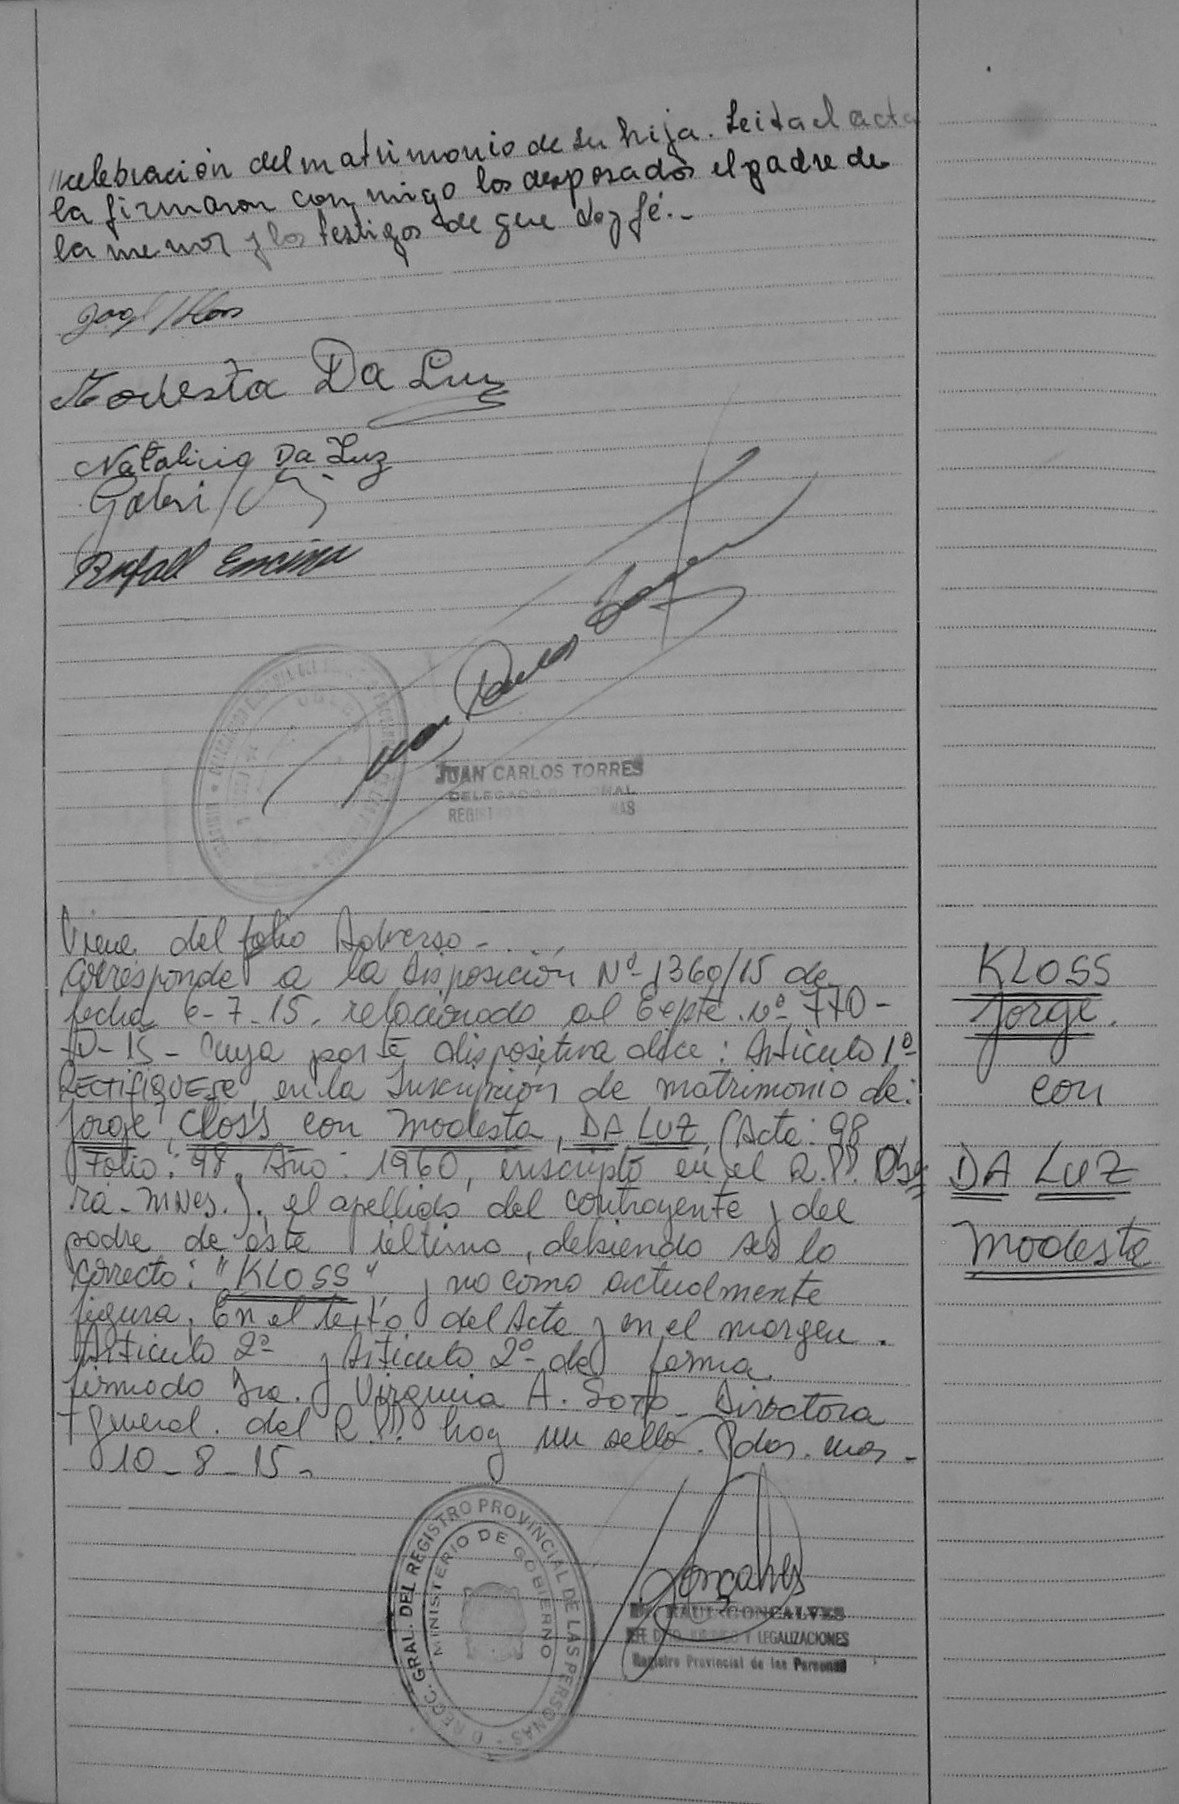 //celebración del matrimonio de su hija. Leida el acta
la firmaron conmigo los desposados el padre de
la menor y los testigos de que doy fé.-
Modesta Da Luz
Natalicio Da Luz
Rafael Encina
Juan Carlos Torres
JUAN CARLOS TORRES
DELEGADO
REGIST
Viene del folio Adverso-
Corresponde a la Disposición Nº 1360/15 de
fecha 6-7-15. relacionado al Expte. Nº 770-
D-15- Cuya parte dispositiva dice: Articulo 1º
RECTIFIQUESE, en la Inscripción de matrimonio de:
Jorge Closs con Modesta, DA LUZ (Acta: 98
Folio: 98, Año: 1960, inscripto en el R.P. Obe
rá-Mnes.). el apellido del contrayente y del
padre de éste último, debiendo ser lo
correcto: "KLOSS", y no como actualmente
figura, En el texto del Acta y en el margen.
Articulo 2º y Articulo 2º de forma.
firmado Dra. Virginia A. Soto- Directora
General. del R.P.P. hay un sello. Pdas. Mnes.-
10-8-15-
KLOSS
Jorge.
con
DA LUZ
Modesta
DIRECC. GRAL. DEL REGISTRO PROVINCIAL DE LAS PERSONAS
MINISTERIO DE GOBIERNO
Gonçalves
RAUL GONCALVES
Y LEGALIZACIONES
Registro Provincial de las Personas